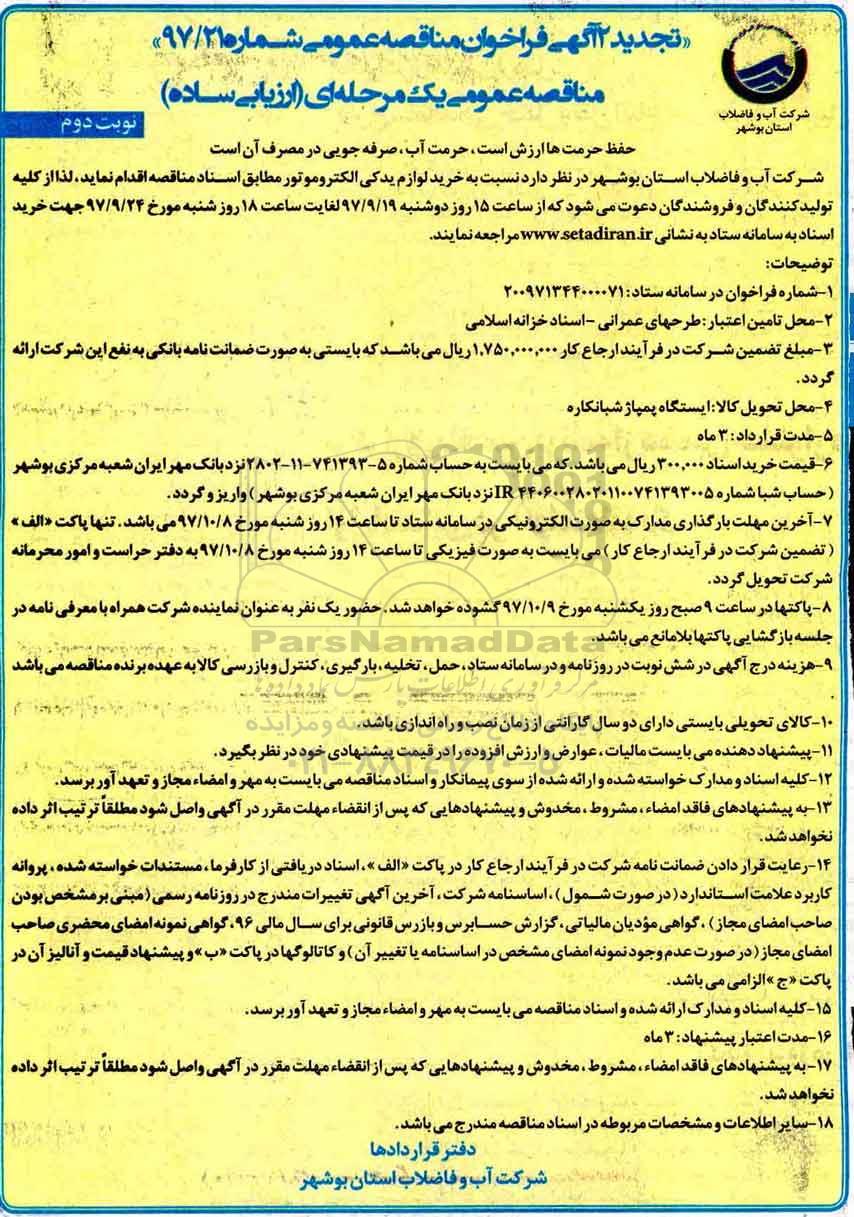 «تجدید ۲ آگهی فراخوان مناقصه عمومی شماره ۹۷/۲۱»
مناقصه عمومی یک مرحله‌ای (ارزیابی ساده)
شرکت آب و فاضلاب
استان بوشهر
نوبت دوم
حفظ حرمت ها ارزش است ، حرمت آب ، صرفه جویی در مصرف آن است
شرکت آب و فاضلاب استان بوشهر در نظر دارد نسبت به خرید لوازم یدکی الکتروموتور مطابق اسناد مناقصه اقدام نماید، لذا از کلیه
تولیدکنندگان و فروشندگان دعوت می شود که از ساعت ۱۵ روز دوشنبه ۹۷/۹/۱۹ لغایت ساعت ۱۸ روز شنبه مورخ ۹۷/۹/۲۴ جهت خرید
اسناد به سامانه ستاد به نشانی www.setadiran.ir مراجعه نمایند.
توضیحات:
۱-شماره فراخوان در سامانه ستاد: ۲۰۰۹۷۱۳۴۴۰۰۰۰۷۱
۲-محل تامین اعتبار: طرحهای عمرانی - اسناد خزانه اسلامی
۳-مبلغ تضمین شرکت در فرآیند ارجاع کار ۱,۷۵۰,۰۰۰,۰۰۰ ریال می باشد که بایستی به صورت ضمانت نامه بانکی به نفع این شرکت ارائه
گردد.
۴-محل تحویل کالا: ایستگاه پمپاژ شبانکاره
۵-مدت قرارداد: ۳ ماه
۶-قیمت خرید اسناد ۳۰۰,۰۰۰ ریال می باشد. که می بایست به حساب شماره ۵-۷۴۱۳۹۳-۱۱-۲۸۰۲ نزد بانک مهر ایران شعبه مرکزی بوشهر
(حساب شبا شماره IR ۴۴۰۶۰۰۲۸۰۲۰۱۱۰۰۷۴۱۳۹۳۰۰۵ نزد بانک مهر ایران شعبه مرکزی بوشهر) واریز و گردد.
۷-آخرین مهلت بارگذاری مدارک به صورت الکترونیکی در سامانه ستاد تا ساعت ۱۴ روز شنبه مورخ ۹۷/۱۰/۸ می باشد. تنها پاکت «الف»
(تضمین شرکت در فرآیند ارجاع کار) می بایست به صورت فیزیکی تا ساعت ۱۴ روز شنبه مورخ ۹۷/۱۰/۸ به دفتر حراست و امور محرمانه
شرکت تحویل گردد.
۸-پاکتها در ساعت ۹ صبح روز یکشنبه مورخ ۹۷/۱۰/۹ گشوده خواهد شد. حضور یک نفر به عنوان نماینده شرکت همراه با معرفی نامه در
جلسه بازگشایی پاکتها بلامانع می باشد.
ParsNamadData
۹-هزینه درج آگهی در شش نوبت در روزنامه و در سامانه ستاد، حمل، تخلیه، بارگیری، کنترل و بازرسی کالا به عهده برنده مناقصه می باشد
.
۱۰-کالای تحویلی بایستی دارای دو سال گارانتی از زمان نصب و راه اندازی باشد.
۱۱-پیشنهاد دهنده می بایست مالیات، عوارض و ارزش افزوده را در قیمت پیشنهادی خود در نظر بگیرد.
۱۲-کلیه اسناد و مدارک خواسته شده و ارائه شده از سوی پیمانکار و اسناد مناقصه می بایست به مهر و امضاء مجاز و تعهد آور برسد.
۱۳-به پیشنهادهای فاقد امضاء، مشروط، مخدوش و پیشنهادهایی که پس از انقضاء مهلت مقرر در آگهی واصل شود مطلقاً ترتیب اثر داده
نخواهد شد.
۱۴-رعایت قرار دادن ضمانت نامه شرکت در فرآیند ارجاع کار در پاکت «الف»، اسناد دریافتی از کارفرما، مستندات خواسته شده، پروانه
کاربرد علامت استاندارد (در صورت شمول)، اساسنامه شرکت، آخرین آگهی تغییرات مندرج در روزنامه رسمی (مبنی بر مشخص بودن
صاحب امضای مجاز)، گواهی مؤدیان مالیاتی، گزارش حسابرس و بازرس قانونی برای سال مالی ۹۶، گواهی نمونه امضای محضری صاحب
امضای مجاز (در صورت عدم وجود نمونه امضای مشخص در اساسنامه یا تغییر آن) و کاتالوگها در پاکت «ب» و پیشنهاد قیمت و آنالیز آن در
پاکت «ج» الزامی می باشد.
۱۵-کلیه اسناد و مدارک ارائه شده و اسناد مناقصه می بایست به مهر و امضاء مجاز و تعهد آور برسد.
۱۶-مدت اعتبار پیشنهاد: ۳ ماه
۱۷-به پیشنهادهای فاقد امضاء، مشروط، مخدوش و پیشنهادهایی که پس از انقضاء مهلت مقرر در آگهی واصل شود مطلقاً ترتیب اثر داده
نخواهد شد.
۱۸-سایر اطلاعات و مشخصات مربوطه در اسناد مناقصه مندرج می باشد.
دفتر قراردادها
شرکت آب و فاضلاب استان بوشهر